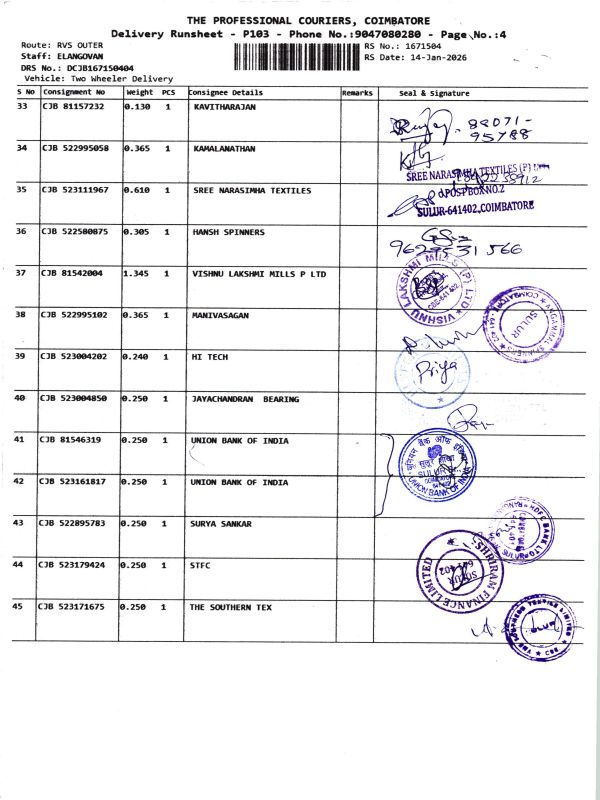 THE PROFESSIONAL COURIERS, COIMBATORE
Delivery Runsheet - P103 - Phone No.:9047080280 - Page No.:4
Route: RVS OUTER
RS No.: 1671504
Staff: ELANGOVAN
RS Date: 14-Jan-2026
DRS No.: DCJB167150404
Vehicle: Two Wheeler Delivery
S No Consignment No Weight PCS Consignee Details Remarks Seal & signature
33 CJB 81157232 0.130 1 KAVITHARAJAN
95788
34 CJB 522995058 0.365 1 KAMALANATHAN
SREE NARASIMHA TEXTILES (P) LTD
35 CJB 523111967 0.610 1 SREE NARASIMHA TEXTILES
POST BOX NO.2
SULUR-641402, COIMBATORE
36 CJB 522580875 0.305 1 HANSH SPINNERS
37 CJB 81542004 1.345 1 VISHNU LAKSHMI MILLS P LTD
VISHNU LAKSHMI MILLS (P) LTD
38 CJB 522995102 0.365 1 MANIVASAGAN
SULUR
39 CJB 523004202 0.240 1 HI TECH
Priya
40 CJB 523004850 0.250 1 JAYACHANDRAN BEARING
41 CJB 81546319 0.250 1 UNION BANK OF INDIA
यूनियन बैंक ऑफ इंडिया
SULUR
UNION BANK OF INDIA
42 CJB 523161817 0.250 1 UNION BANK OF INDIA
43 CJB 522895783 0.250 1 SURYA SANKAR
HDFC BANK LTD
SULUR
44 CJB 523179424 0.250 1 STFC
SHRIRAM FINANCE LIMITED
SULUR
641 402
45 CJB 523171675 0.250 1 THE SOUTHERN TEX
THE SOUTHERN TEXTILE LIMITED
SULUR
CBE